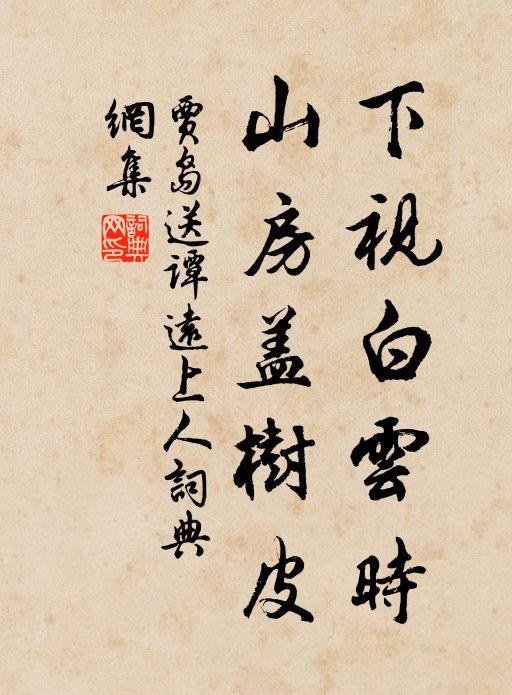 下視白雲時
山房盖樹皮
賈島送譚遠上人詞典
網集
詞典網印